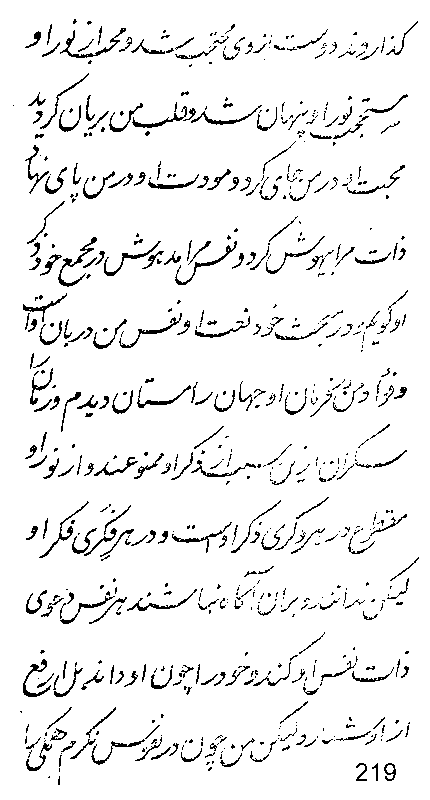 کذارو ند دوست از وی محتجب شد و محب از نور او
محتجب نور او پنهان شد و قلب من بریان کردید
محبت او در من جای کرد و مودت او در من پای نهاد
ذات مرا بیهوش کرد و نفس مرا مدهوش در مجمع خود ذکر
او کویم و در خود نعت او نفس من در بان اوست
و فراد من او جهان را مستان دیدم و زمان را
سکران ازین سبب از ذکر او ممنوعند و از نور او
مقطوع در هر ذکری ذکر او است و در هر فکری فکر او
لیکن ندانند و بران آکاه نباشند هر نفس دعوی
ذات نفس او کند و خود را چون او داند بل ارفع
از او شمارد لیکن من چون در نفوس نکرم همکی را
219